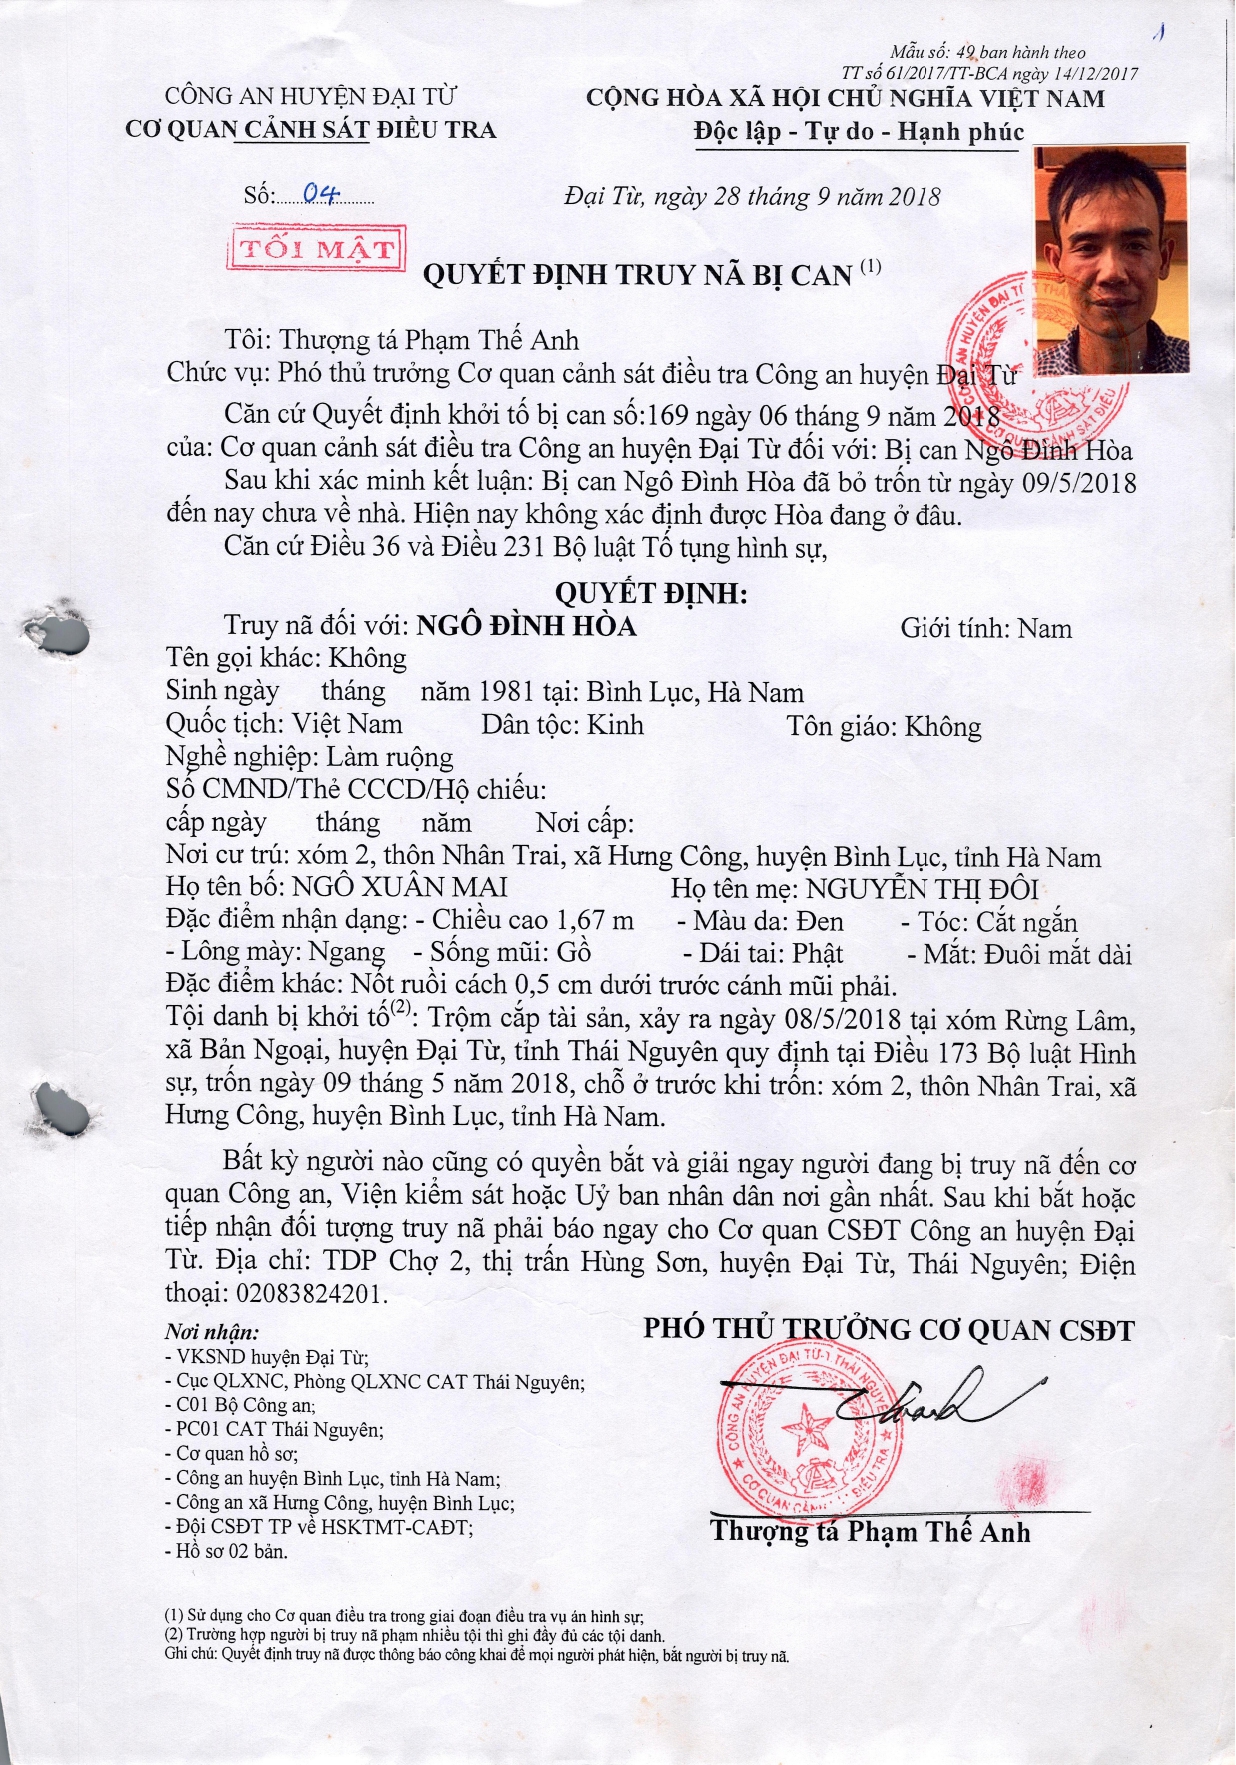 1
Mẫu số: 49 ban hành theo
TT số 61/2017/TT-BCA ngày 14/12/2017
CÔNG AN HUYỆN ĐẠI TỪ
CƠ QUAN CẢNH SÁT ĐIỀU TRA
CỘNG HÒA XÃ HỘI CHỦ NGHĨA VIỆT NAM
Độc lập - Tự do - Hạnh phúc
Số:.......04..........
Đại Từ, ngày 28 tháng 9 năm 2018
TỐI MẬT
QUYẾT ĐỊNH TRUY NÃ BỊ CAN (1)
Tôi: Thượng tá Phạm Thế Anh
Chức vụ: Phó thủ trưởng Cơ quan cảnh sát điều tra Công an huyện Đại Từ
Căn cứ Quyết định khởi tố bị can số:169 ngày 06 tháng 9 năm 2018
của: Cơ quan cảnh sát điều tra Công an huyện Đại Từ đối với: Bị can Ngô Đình Hòa
Sau khi xác minh kết luận: Bị can Ngô Đình Hòa đã bỏ trốn từ ngày 09/5/2018
đến nay chưa về nhà. Hiện nay không xác định được Hòa đang ở đâu.
Căn cứ Điều 36 và Điều 231 Bộ luật Tố tụng hình sự,
QUYẾT ĐỊNH:
Truy nã đối với: NGÔ ĐÌNH HÒA Giới tính: Nam
Tên gọi khác: Không
Sinh ngày tháng năm 1981 tại: Bình Lục, Hà Nam
Quốc tịch: Việt Nam Dân tộc: Kinh Tôn giáo: Không
Nghề nghiệp: Làm ruộng
Số CMND/Thẻ CCCD/Hộ chiếu:
cấp ngày tháng năm Nơi cấp:
Nơi cư trú: xóm 2, thôn Nhân Trai, xã Hưng Công, huyện Bình Lục, tỉnh Hà Nam
Họ tên bố: NGÔ XUÂN MAI Họ tên mẹ: NGUYỄN THỊ ĐÔI
Đặc điểm nhận dạng: - Chiều cao 1,67 m - Màu da: Đen - Tóc: Cắt ngắn
- Lông mày: Ngang - Sống mũi: Gồ - Dái tai: Phật - Mắt: Đuôi mắt dài
Đặc điểm khác: Nốt ruồi cách 0,5 cm dưới trước cánh mũi phải.
Tội danh bị khởi tố(2): Trộm cắp tài sản, xảy ra ngày 08/5/2018 tại xóm Rừng Lâm,
xã Bản Ngoại, huyện Đại Từ, tỉnh Thái Nguyên quy định tại Điều 173 Bộ luật Hình
sự, trốn ngày 09 tháng 5 năm 2018, chỗ ở trước khi trốn: xóm 2, thôn Nhân Trai, xã
Hưng Công, huyện Bình Lục, tỉnh Hà Nam.
Bất kỳ người nào cũng có quyền bắt và giải ngay người đang bị truy nã đến cơ
quan Công an, Viện kiểm sát hoặc Uỷ ban nhân dân nơi gần nhất. Sau khi bắt hoặc
tiếp nhận đối tượng truy nã phải báo ngay cho Cơ quan CSĐT Công an huyện Đại
Từ. Địa chỉ: TDP Chợ 2, thị trấn Hùng Sơn, huyện Đại Từ, Thái Nguyên; Điện
thoại: 02083824201.
Nơi nhận:
- VKSND huyện Đại Từ;
- Cục QLXNC, Phòng QLXNC CAT Thái Nguyên;
- C01 Bộ Công an;
- PC01 CAT Thái Nguyên;
- Cơ quan hồ sơ;
- Công an huyện Bình Lục, tỉnh Hà Nam;
- Công an xã Hưng Công, huyện Bình Lục;
- Đội CSĐT TP về HSKTMT-CAĐT;
- Hồ sơ 02 bản.
PHÓ THỦ TRƯỞNG CƠ QUAN CSĐT
CÔNG AN HUYỆN ĐẠI TỪ-T. THÁI NGUYÊN
CƠ QUAN CẢNH SÁT ĐIỀU TRA
Thượng tá Phạm Thế Anh
(1) Sử dụng cho Cơ quan điều tra trong giai đoạn điều tra vụ án hình sự;
(2) Trường hợp người bị truy nã phạm nhiều tội thì ghi đầy đủ các tội danh.
Ghi chú: Quyết định truy nã được thông báo công khai để mọi người phát hiện, bắt người bị truy nã.